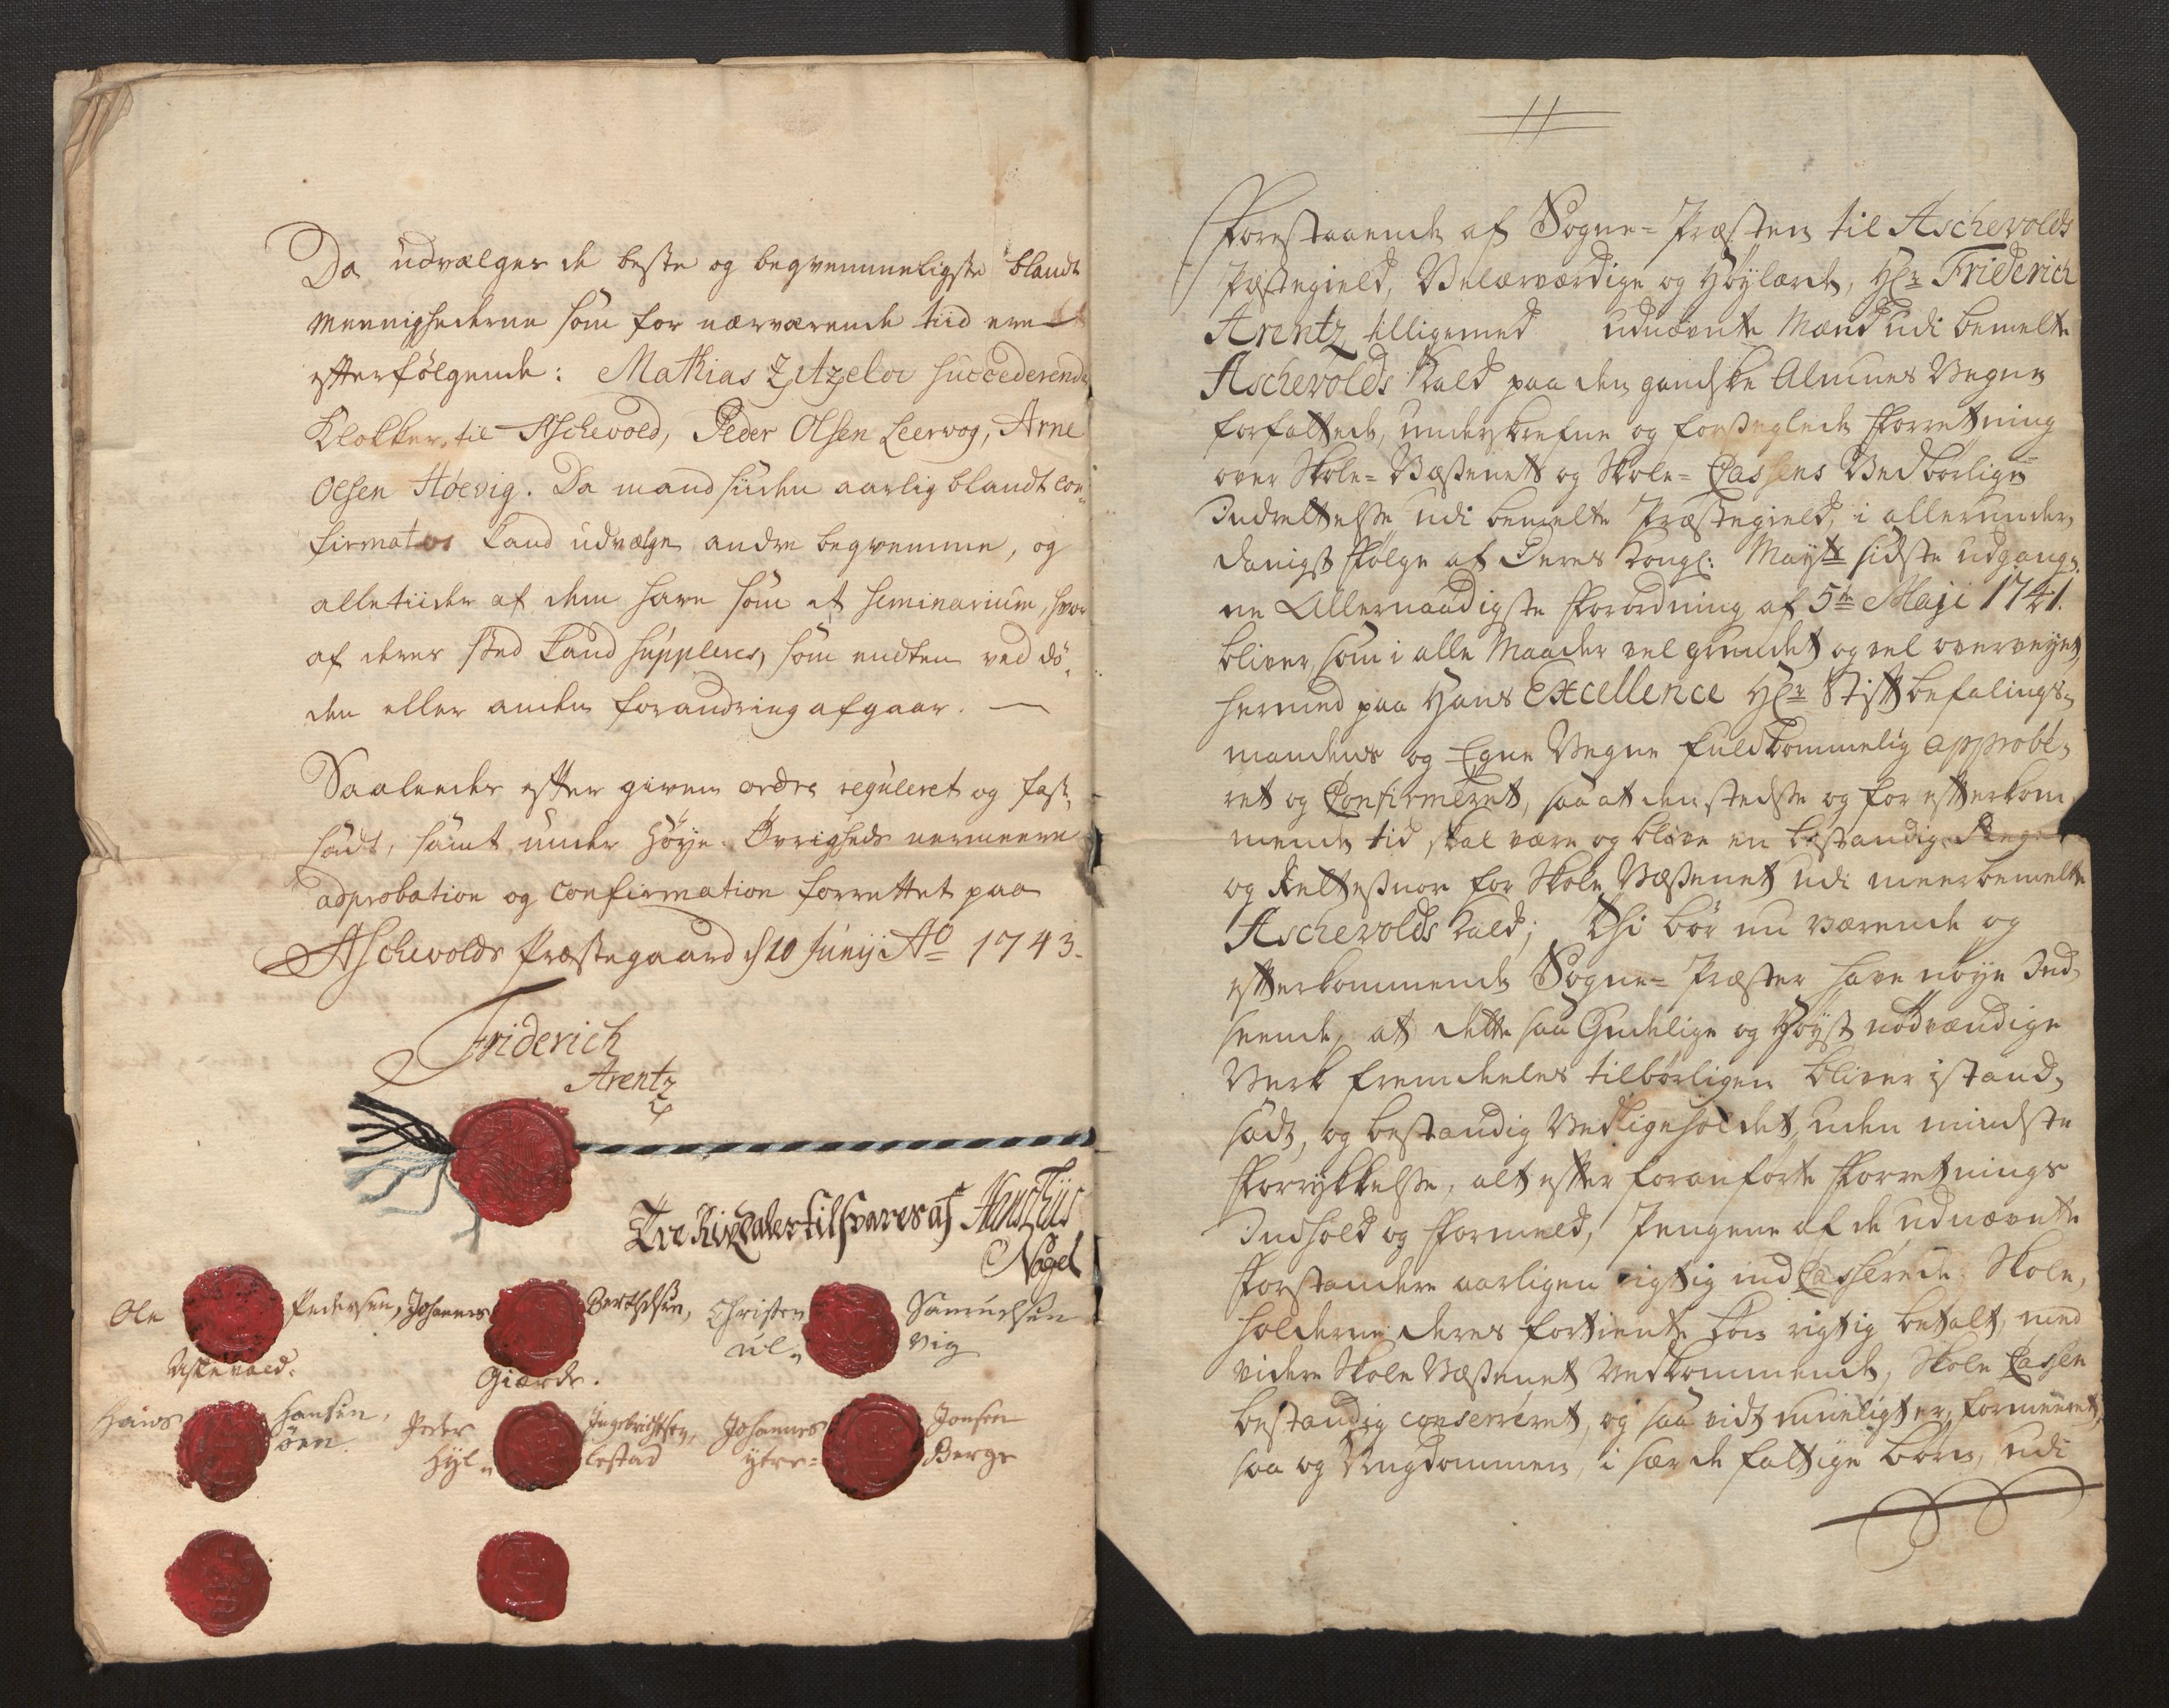 Da udvælges de beste og beqvemmeligste blandt
Menighederne som for nærværende tiid ere
efterfølgende: Mathias Zitzelov succederende
Klokker til Aschevold, Peder Olsen Leervog, Arne
Olsen Høevig. Da mand siiden aarlig blandt con-
firmator kand udvælge andre beqvemme, og
alletiider af dem have som et seminarium, hvor
af deres sted kand suppleres, som endten ved dø-
den eller anden forandring afgaar. —
Saaleedes efter given ordre reguleret og fast-
sadt, samt under Høye Øvrigheds nermeere
adprobation og confirmation forrettet paa
Aschevolds Præstegaard d 10 Junij Ao 1743.
Friderich
Arentz
Tre Rixdaler tilsvares af
Nagel
Ole Pedersen, Johannes Berthelsen, Christen Samuelsen
Askevold. Giærde. Ul- vig
Hans Hansen, Peder Ingebrichtsen, Johannes Jonsen
øen. Hyl- lestad ytre- Berge
11
Forestaaende af Sogne-Præsten til Aschevolds
Præstegield, Velærværdige og Høylærde, Hr Friderich
Arentz tilligemed udnævnte Mænd udi bemelte
Aschevolds Kald paa den gandske Almues Vegne
forfattede, underskrefne og forseglede Forretning
over Skole-Væsenets og Skole-Cassens Vedbørlige
Indrettelse udi bemelte Præstegield, i allerunder-
danigst Følge af Deres Kongl: Mayts sidste udgang-
ne Allernaadigste Forordning af 5te Maji 1741.
bliver, som i alle Maader vel grundet og vel overveyet,
hermed paa Hans Excellence Hr Stiftbefalings-
mandens og Egne Vegne fuldkommelig approbe-
ret og Confirmeret, saa at den stedse og for efterkom-
mende tid skal være og blive en bestandig Regel
og Rettesnor for Skole Væsenet udi meerbemelte
Aschevolds Kald; Thi bør nu værende og
efterkommende Sogne-Præster have nøye Ind-
seende, at dette saa Gudelige og Høyst nødvendige
Verk fremdeeles tilbørligen bliver i stand-
sadt, og bestandig Vedligeholdet, uden mindste
Forrykkelse, alt efter foranførte Forretnings
Indhold og Formeld, Pengene af de udnævnte
Forstandere aarligen rigtig indCasserede, Skole-
holderne deres fortiente Løn rigtig betalt, med
videre Skole Væsenet Vedkommende, Skole Cassen
bestandig conserveret, og saa vidt mueligt er, formeeret,
saa og Ungdommen, i sær de fattige børn, udi